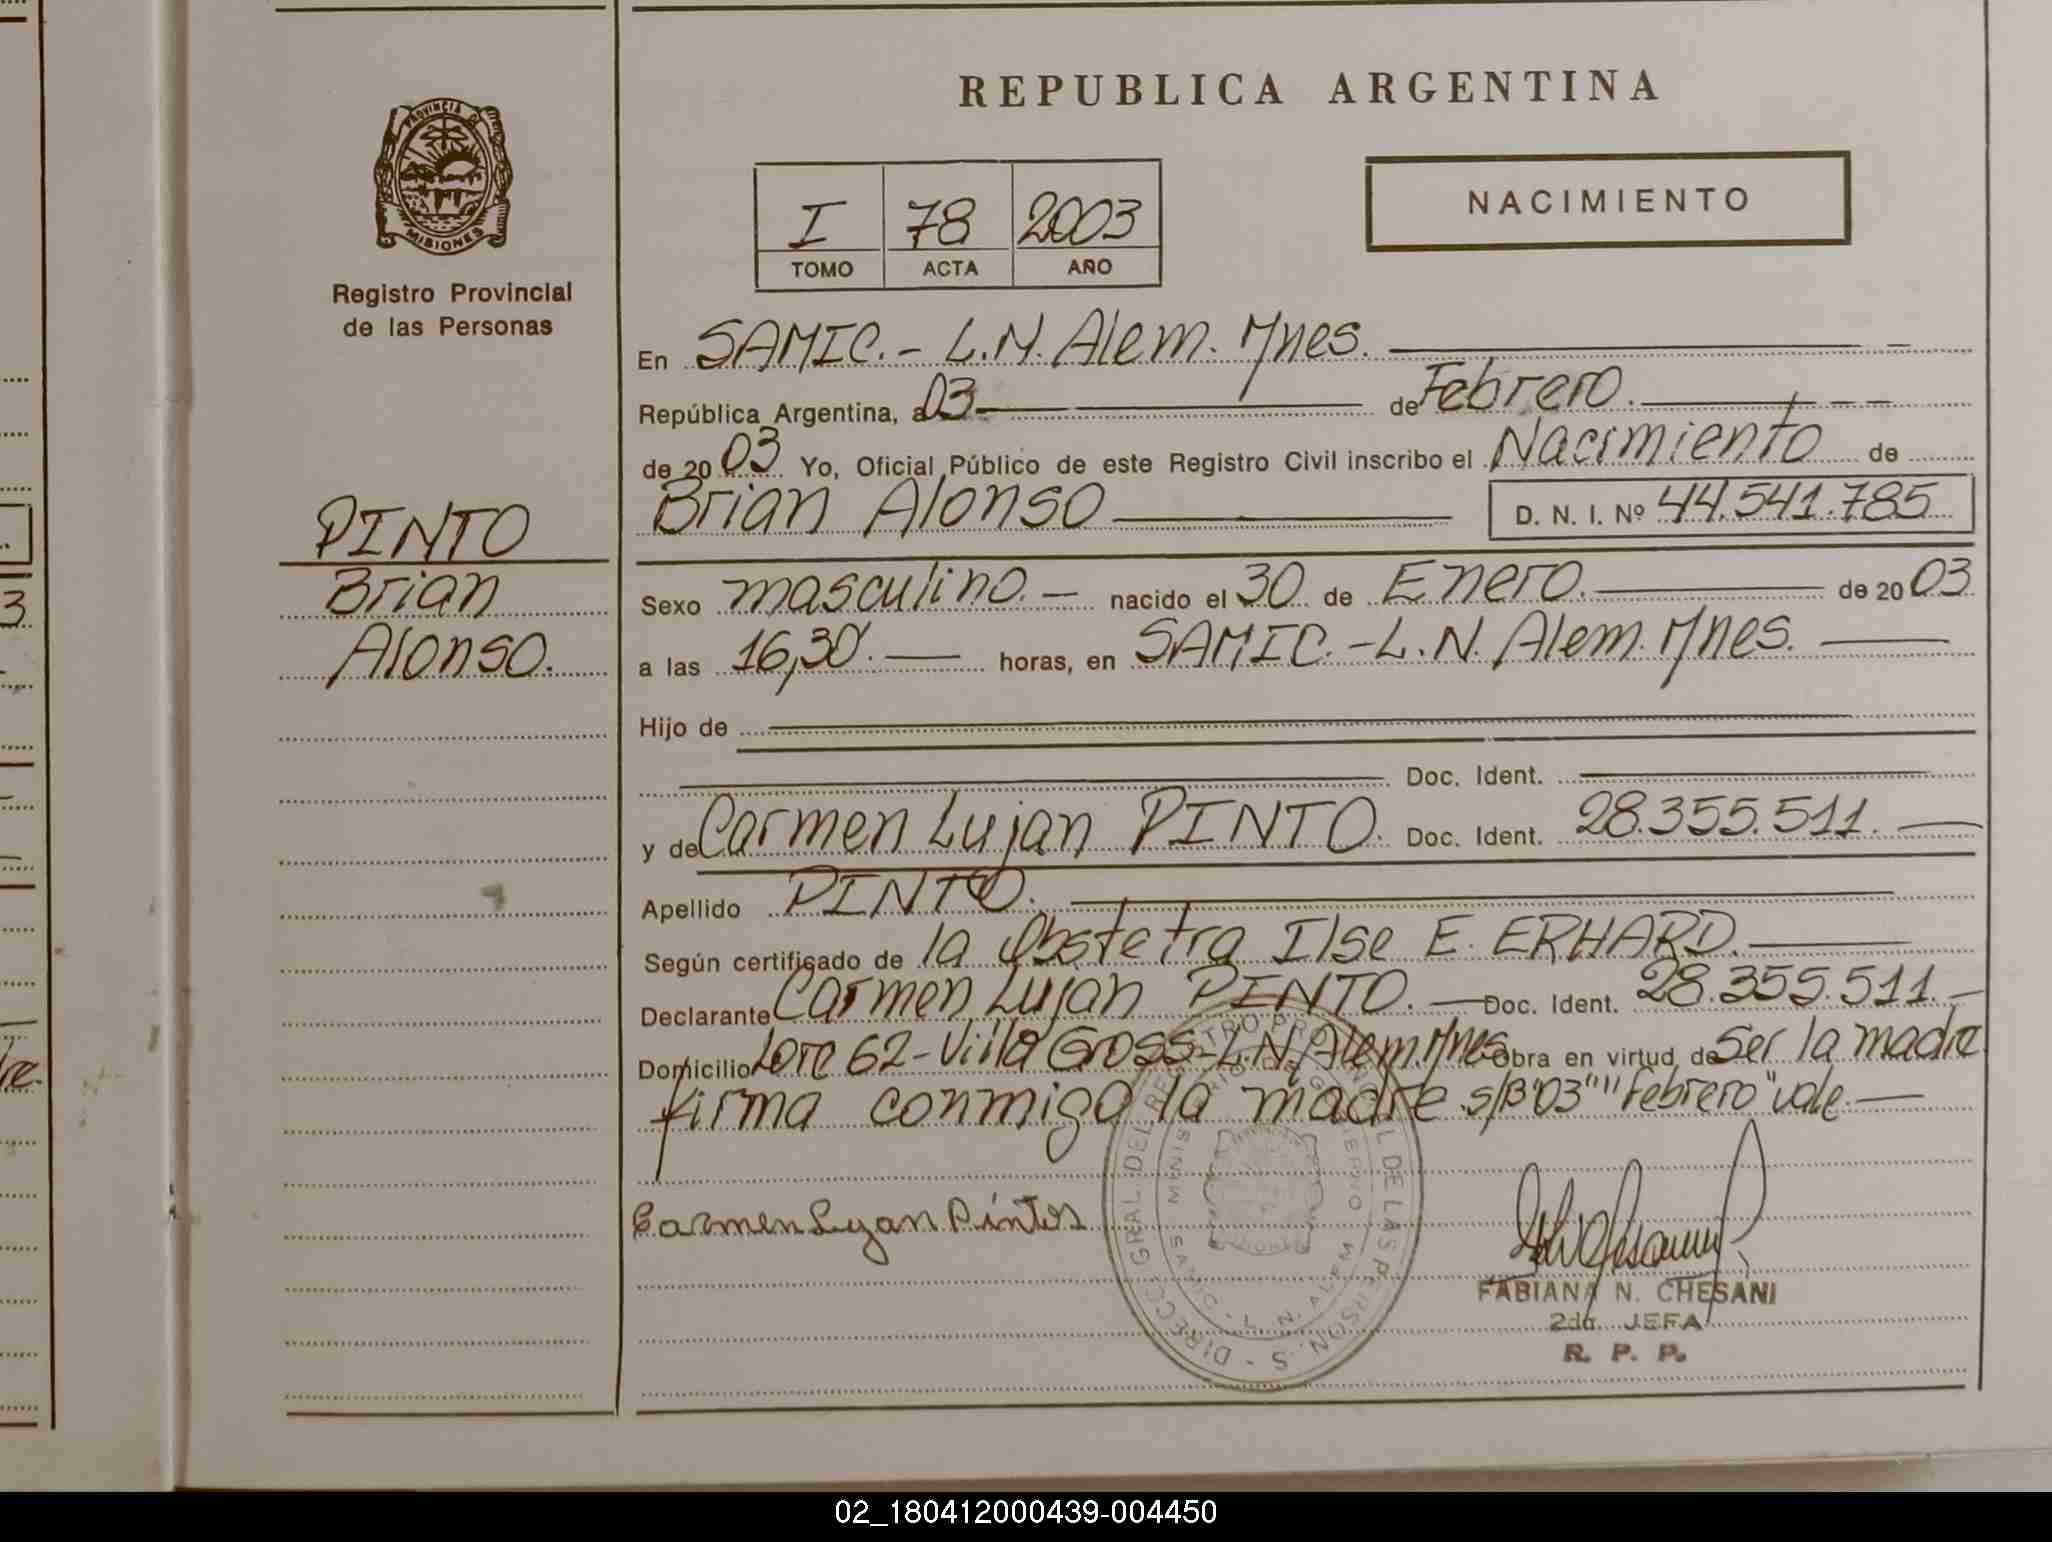 REPUBLICA ARGENTINA
PROVINCIA DE
MISIONES
Registro Provincial
de las Personas
I 78 2003
TOMO ACTA AÑO
NACIMIENTO
En SAMIC.- L.N. Alem. Mnes.
República Argentina, a 03 de Febrero.
de 2003 Yo, Oficial Público de este Registro Civil inscribo el Nacimiento de
Brian Alonso D. N. I. Nº 44.541.785
PINTO
Brian
Alonso.
Sexo masculino. nacido el 30 de Enero. de 2003
a las 16,30. horas, en SAMIC.-L.N. Alem. Mnes.
Hijo de
Doc. Ident.
y de Carmen Lujan PINTO. Doc. Ident. 28.355.511.
Apellido PINTO.
Según certificado de la Obstetra Ilse E. ERHARD.
Declarante Carmen Lujan PINTO. Doc. Ident. 28.355.511.
Domicilio Lote 62-Villa Gross-L.N. Alem. Mnes Obra en virtud de Ser la madre
firma conmigo la madre s/B "03" "Febrero" vale.
Carmen Lujan Pinto
DIRECC. GRAL DEL REGISTRO PROVINCIAL DE LAS PERSON. S -
MINISTERIO DE GOBIERNO
SAMIC - L. N. ALEM
FABIANA N. CHESANI
2da. JEFA
R. P. P.
02_180412000439-004450